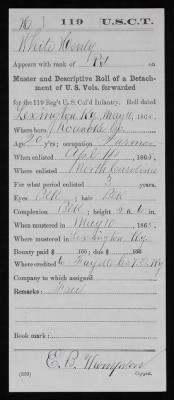 W | 119 | U.S.C.T.
White Henry
Appears with rank of Pvt
Muster and Descriptive Roll of a Detach-
ment of U. S. Vols. forwarded
for the 119 Reg't U. S. Col'd Infantry. Roll dated
Lexington Ky May 10, 1865.
Where born Roanoke Co.
Age 20 y'rs; occupation Farmer
When enlisted April 1865.
Where enlisted North Carolina
For what period enlisted 3 years.
Eyes Blk; hair Blk
Complexion Blk; height 5 ft. 6 in.
When mustered in May 10, 1865.
Where mustered in Lexington Ky.
Bounty paid $ 100; due $ 100
Where credited Fayette Co Ky
Company to which assigned
Remarks: Free
Book mark:
E. B. Thompson
Copyist.
(339)